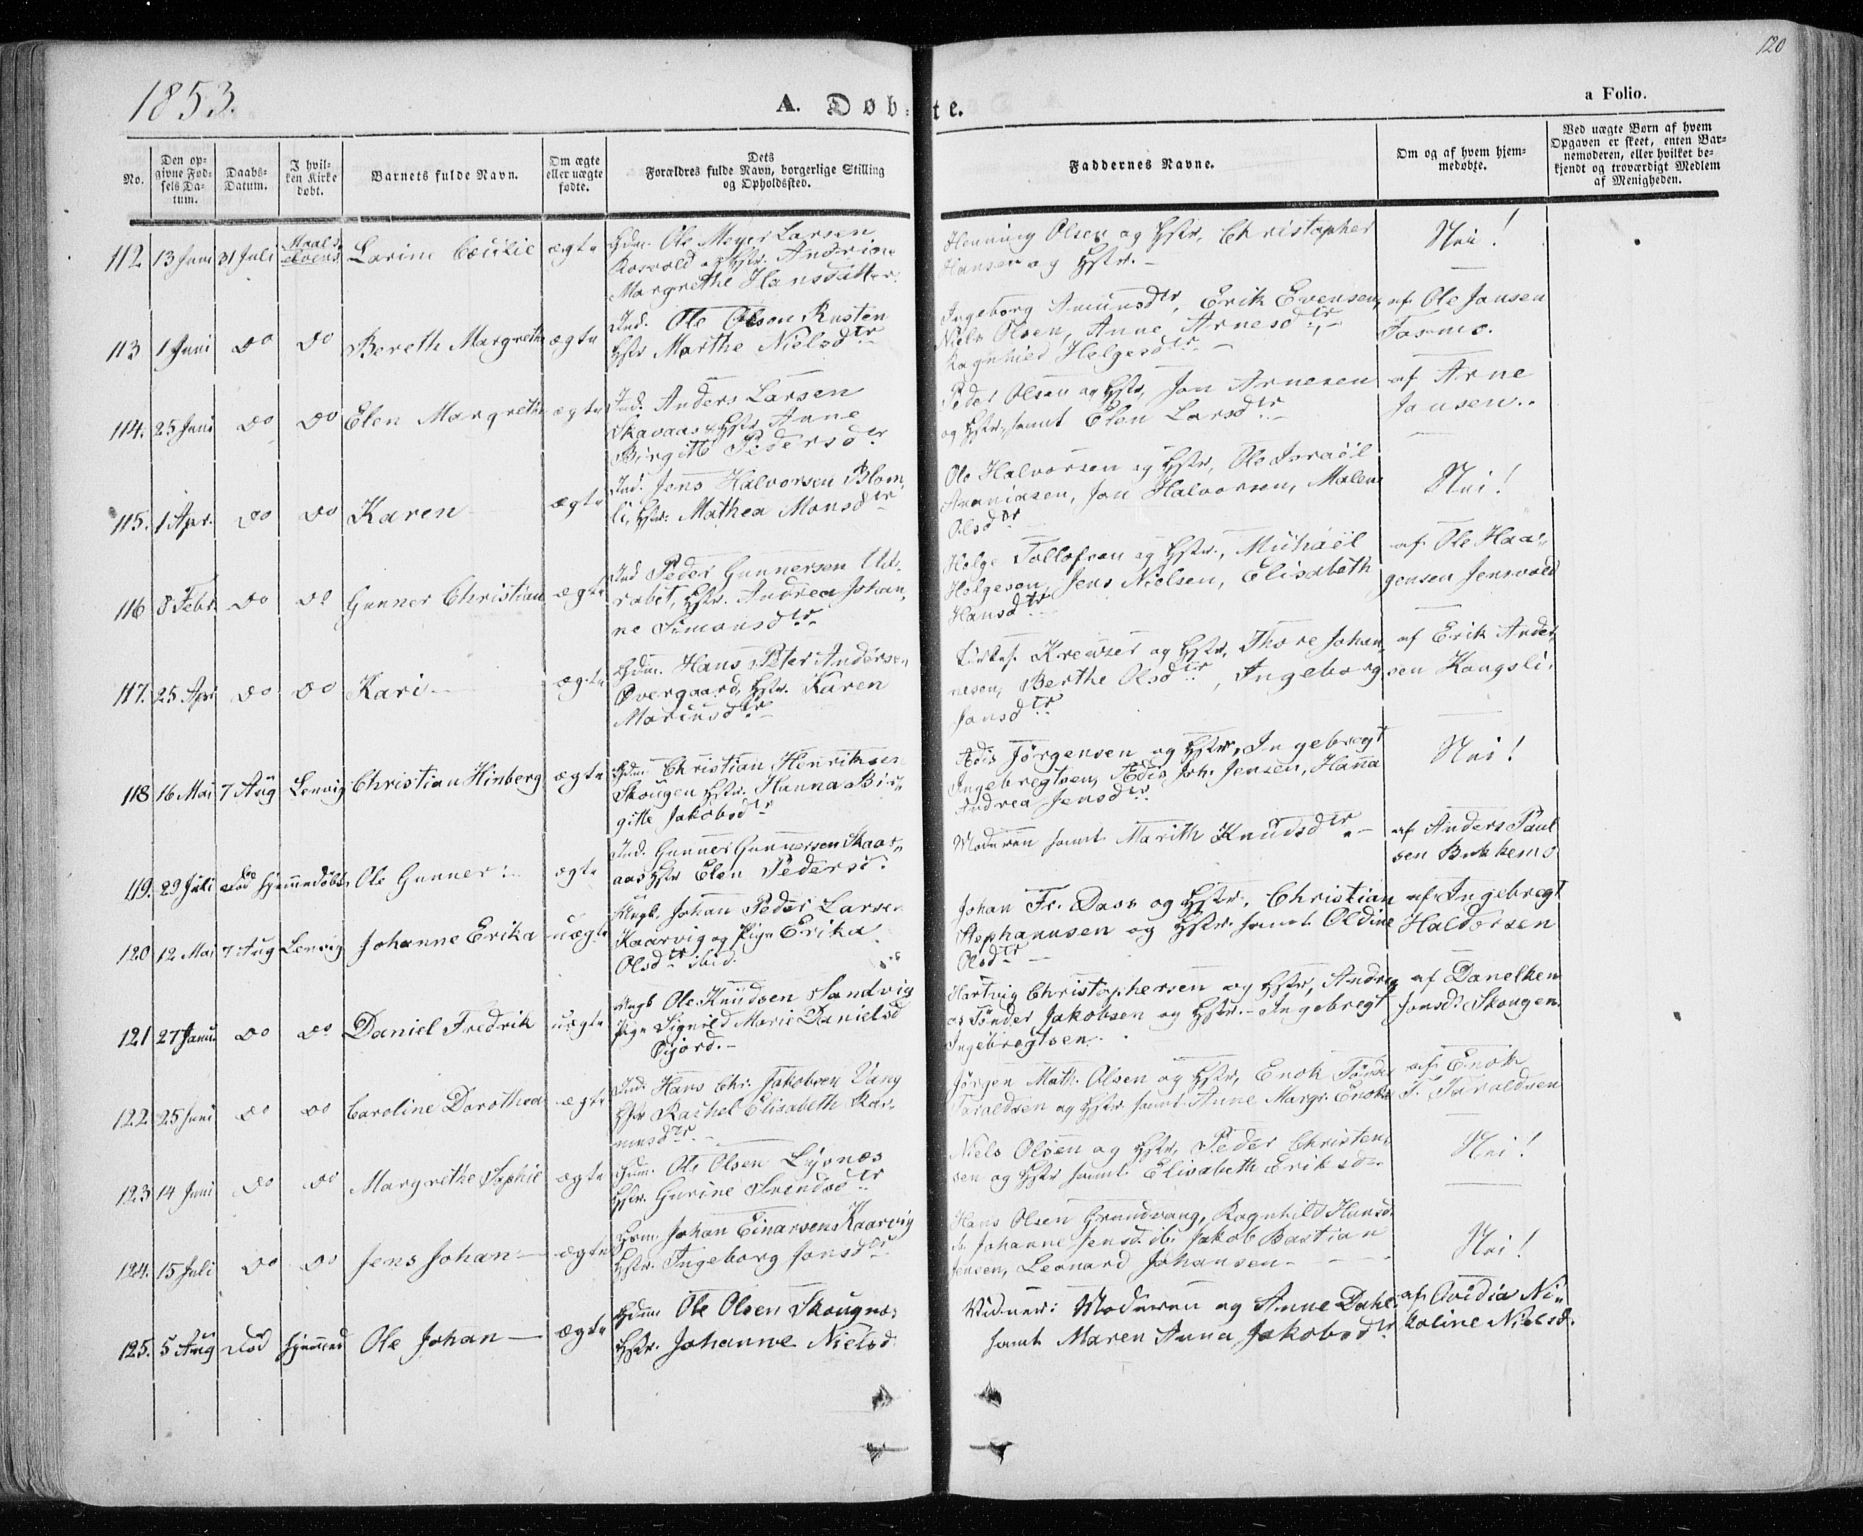 120
1853.
A. Døbte.
a Folio.
No.
Den op-
givne Fød-
sels Da-
tum.
Daabs-
Datum.
I hvil-
ken Kirke
døbt.
Barnets fulde Navn.
Om ægte
eller uægte
fødte.
Dets
Forældres fulde Navn, borgerlige Stilling
og Opholdssted.
Faddernes Navne.
Om og af hvem hjem-
medøbte.
Ved uægte Børn af hvem
Opgaven er skeet, enten Bar-
nemoderen, eller hvilket be-
kjendt og troværdigt Medlem
af Menigheden.
112 13 Juni 31 Juli Maals-
elvens Larine Cæcilie ægte
Gdm. Ole Meyer Larsen
Rosvold og Hstr. Andrine
Margrethe Hansdatter
Henning Olsen og Hstr, Christopher
Hansen og Hstr.-
Nei!
113 1 Juni Do Do Bereth Margrethe ægte
Ind. Ole Olsen Rusten
Hstr Marthe Nielsdtr
Ingeborg Amundsdtr, Erik Evensen,
Niels Olsen, Anne Arnesdtr,-
Ragnhild Helgesdtr-
af Ole Jonsen
Fosmo.
114. 25 Juni Do Do Elen Margrethe ægte
Ind. Anders Larsen
Skavaas Hstr Anne
Birgitte Pedersdr
Peder Olsen og Hstr, Jon Arnesen
og Hstr, samt Elen Larsdtr-
af Arne
Jonsen..
115. 1 Apr. Do Do Karen ægte
Ind. Jens Halvorsen Blom-
li, Hstr. Mathea Monsdtr
Ole Halvorsen og Hstr, Ole Israël
Ananiasen, Jon Halvorsen, Malene
Olsdtr
Nei!
116 8 Febr. Do Do Gunner Christian ægte
Ind Peder Gunnersen Ud-
rabet, Hstr. Andrea Johan-
ne Simonsdtr
Helge Tollefsen og Hstr., Michaël
Helgesen, Jens Nielsen, Elisabeth
Hansdtr
af Ole Haa-
gensen Jensvold
117. 25 Apr Do Do Kari- ægte
Gdm. Hans Peter Andersen
Overgaard, Hstr. Karen
Mariusdtr-
Kreutser og Hstr, Thore Johan-
nesen, Berthe Olsdtr, Ingeborg
Jonsdtr
af Erik Ander-
sen Kongsli.
118 16 Mai 7 Aug Lenvig Christian Hinberg ægte
Gdm Christian Henriksen
Skougen Hstr. Hanna Bir-
gitte Jakobsdtr
Adis Jörgensen og Hstr, Ingebregt
Ingebregtsen, Adis Joh. Jensen, Hanna
Andrea Jensdtr
Nei!
119. 29 Juli død Hjemmedøbt Ole Gunner:. ægte
Ind. Gunner Gunnersen Skaar-
aas Hstr Elen Pedersd.
Moderen samt Marith Knudsdtr.-
af Anders Paul
sen Bakkemo
120 12 Mai 7 Aug Lenvig Johanne Erika uægte
Ungk. Johan Peder Larsen
Kaarvig og Pige Erika
Olsdtr ibid.
Johan Fr. Dass og Hstr, Christian
Stephanusen og Hstr samt Oldine
Olsdtr-
af Ingebregt
Haldorsen
121 27 Janu. Do Do Daniel Fredrik uægte
Ungk Ole Knudsen Sandvig
Pige Sigrild Marie Danielsd
Gjord.-
Hartvig Christophersen og Hstr, Andreas
Tönder Jakobsen og Hstr.- Ingebregt
Ingebregtsen.
af Danelken
Jonsd. Skougen
122 25 Juni Do Do Caroline Dorothea ægte
Ind. Hans Chr. Jakobsen Vang
Hstr Rachel Elisabeth Ras-
musdtr.-
Jörgen Math. Olsen og Hstr, Enok Tönder
Taraldsen og Hstr samt Anne Margr. Enoks
af Enok
T. Taraldsen
123 14 Juni Do Do Margrethe Sophie ægte
Gdm. Ole Olsen Lysnæs
Hstr. Gurine Svendsdtr
Niels Olsen og Hstr, Peder Christen-
sen og Hstr samt Elisabeth Eriksd.
Nei!
124. 15 Juli Do Do Jens Johan- ægte
Gdm Johan Einarsen Kaarvig
Hstr. Ingeborg Jonsdtr-
Hans Olsen Grundvang, Ragnhild Hansd.
Johanne Jensd. ib. Jakob Bastian
Jensen, Leonard Johansen-
Nei!
125. 5 Aug død hjemmed Ole Johan- ægte
Gdm Ole Olsen Skougnæs
Hstr. Johanne Nielsd
Vidner: Moderen og Anne Dahl
samt Maren Anna Jakobsdtr.
af Ovidia Ni-
koline Nielsd.